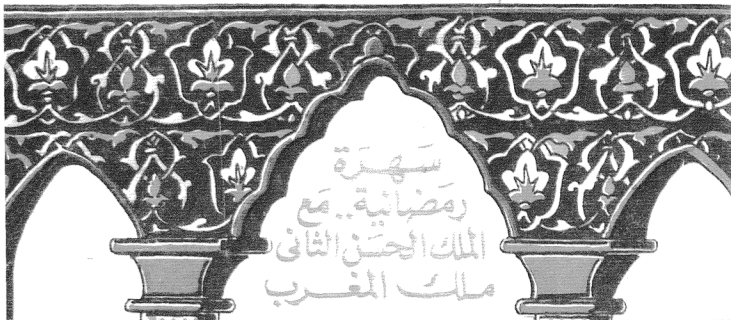 سَهرَة
رمَضانية.. مَع
الملك الحسَن الثانى
ملك المغرب